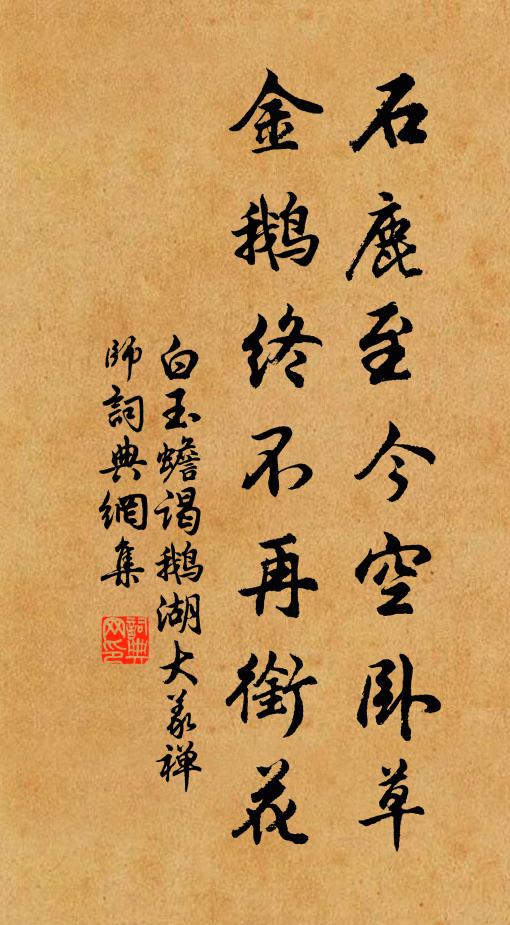 石鹿至今空卧草
金鵝終不再銜花
白玉蟾谒鵝湖大义禅
師詞典網集
詞典网印